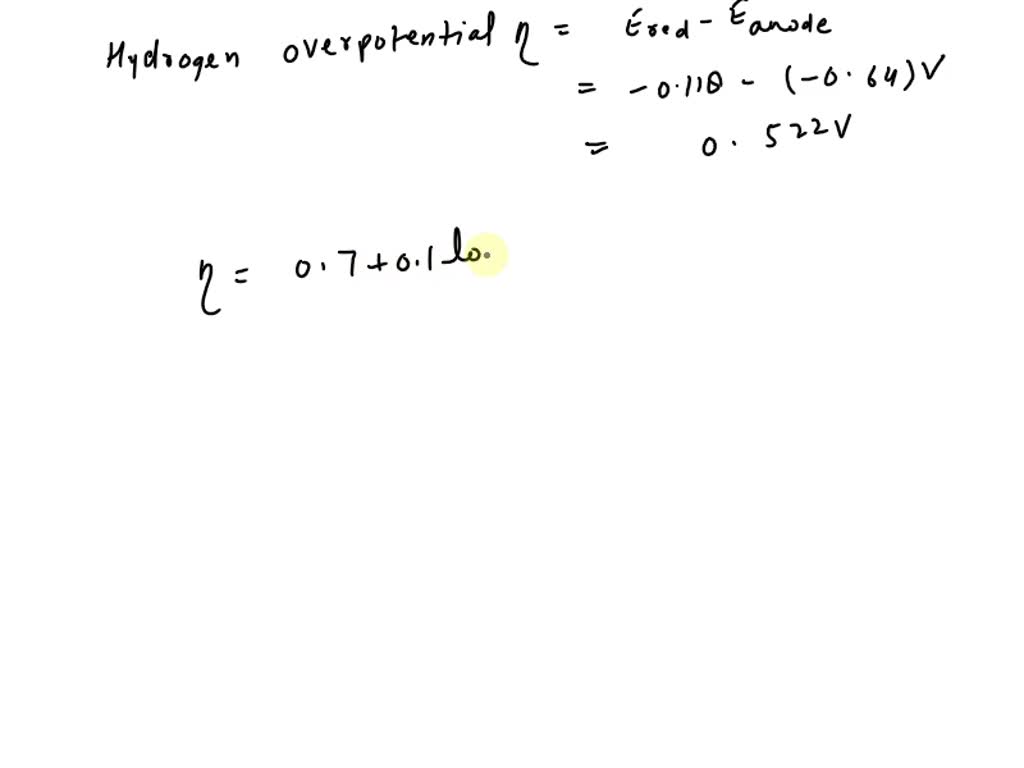 Hydrogen overpotential η = Ered - Eanode
= -0.118 - (-0.64)V
= 0.522V
η = 0.7+0.1 lo.